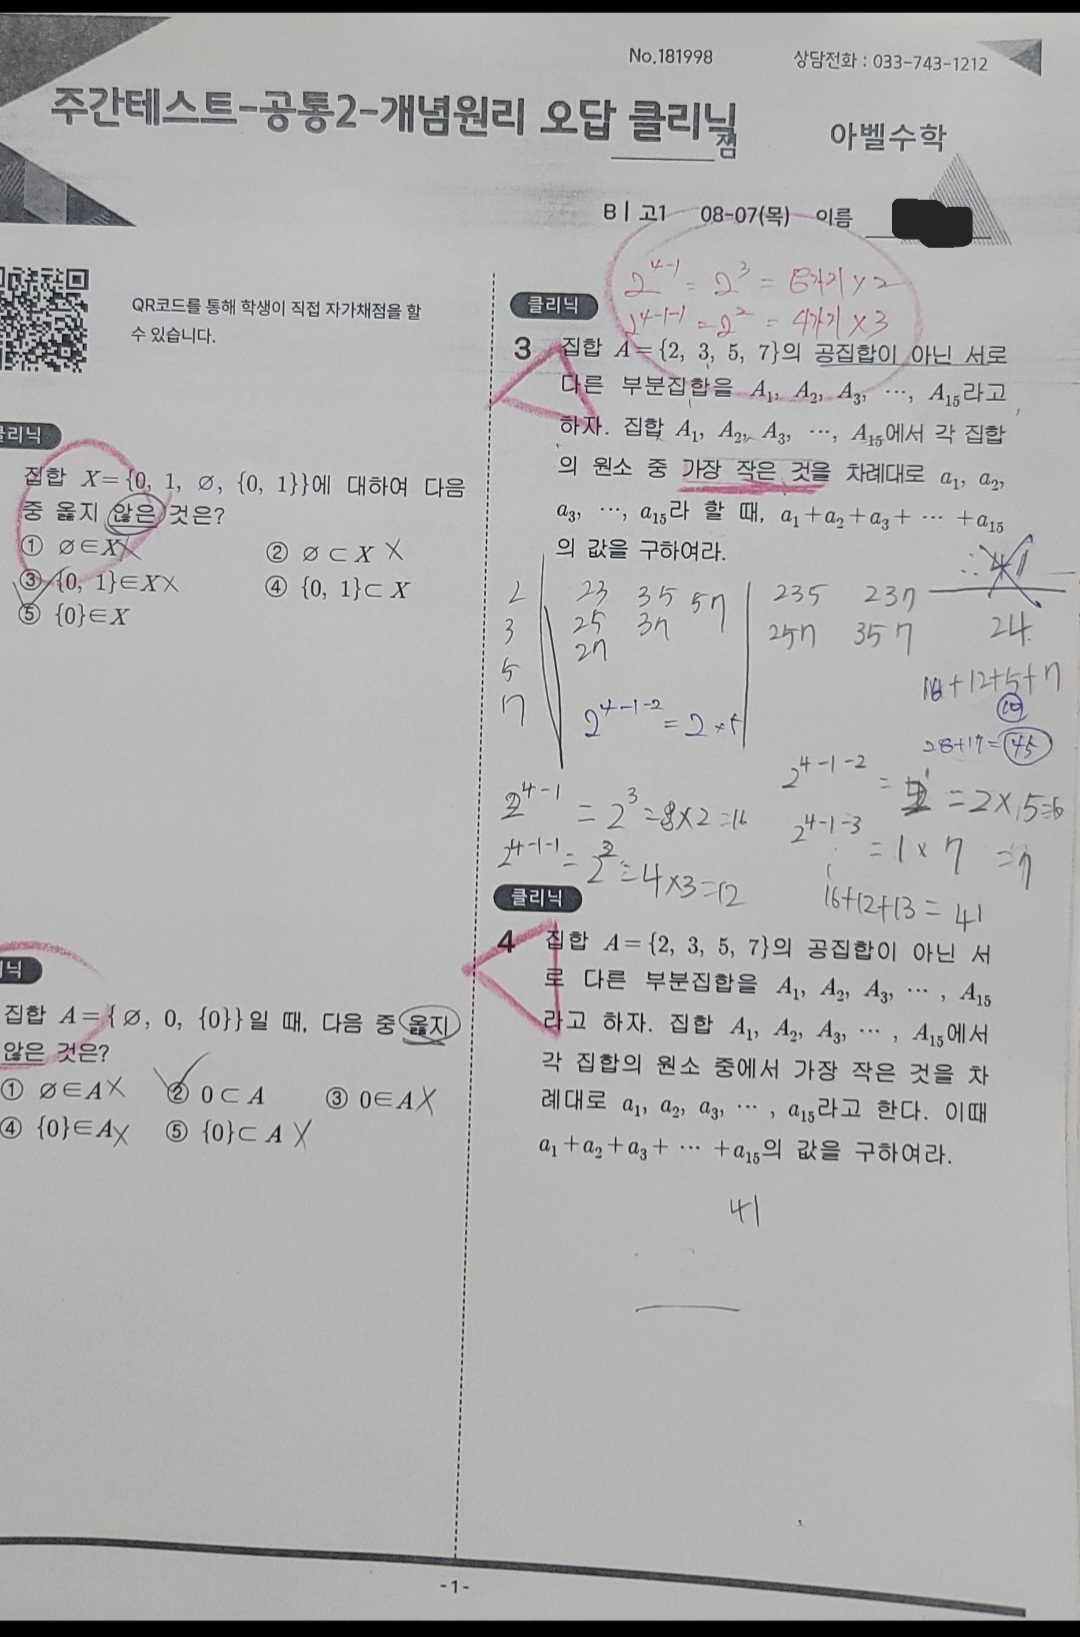 No.181998
상담전화 : 033-743-1212
주간테스트-공통2-개념원리 오답 클리닉
쩜
아벨수학
B | 고1 08-07(목) 이름
QR코드를 통해 학생이 직접 자가채점을 할
수 있습니다.
클리닉
집합 X={0, 1, ∅, {0, 1}}에 대하여 다음
중 옳지 않은 것은?
① ∅∈X X
② ∅⊂X X
③ {0, 1}∈X X
④ {0, 1}⊂X
⑤ {0}∈X
닉
집합 A={∅, 0, {0}}일 때, 다음 중 옳지
않은 것은?
① ∅∈A X
② 0⊂A
③ 0∈A X
④ {0}∈A X
⑤ {0}⊂A X
2^4-1 = 2^3 = 8가지 x 2
2^4-1-1 = 2^2 = 4가지 x 3
클리닉
3 집합 A={2, 3, 5, 7}의 공집합이 아닌 서로
다른 부분집합을 A₁, A₂, A₃, ⋯, A₁₅라고
하자. 집합 A₁, A₂, A₃, ⋯, A₁₅에서 각 집합
의 원소 중 가장 작은 것을 차례대로 a₁, a₂,
a₃, ⋯, a₁₅라 할 때, a₁+a₂+a₃+ ⋯ +a₁₅
의 값을 구하여라.
2 23 35 57 235 237
3 25 37 257 357
5 27
7
∴ 41
24
+12+5+7
28+17=45
2^4-1-2 = 2 x 5
2^4-1 = 2^3 = 8x2 = 16
2^4-1-1 = 2^2 = 4x3 = 12
2^4-1-2 = = 2x5
2^4-1-3 = 1 x 7 = 7
16+12+13 = 41
클리닉
4 집합 A={2, 3, 5, 7}의 공집합이 아닌 서
로 다른 부분집합을 A₁, A₂, A₃, ⋯ , A₁₅
라고 하자. 집합 A₁, A₂, A₃, ⋯ , A₁₅에서
각 집합의 원소 중에서 가장 작은 것을 차
례대로 a₁, a₂, a₃, ⋯ , a₁₅라고 한다. 이때
a₁+a₂+a₃+ ⋯ +a₁₅의 값을 구하여라.
41
-1-